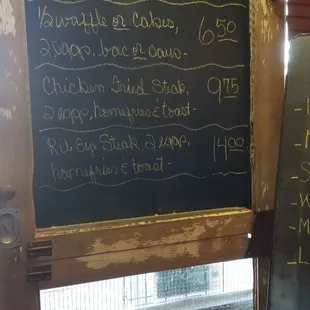 1/2 Waffle or Cakes, 6.50
2 eggs, bac or saus-
Chicken Fried Steak, 9.75
2 eggs, homefries & toast-
Rib Eye Steak, 2 eggs, 14.00
homefries & toast-